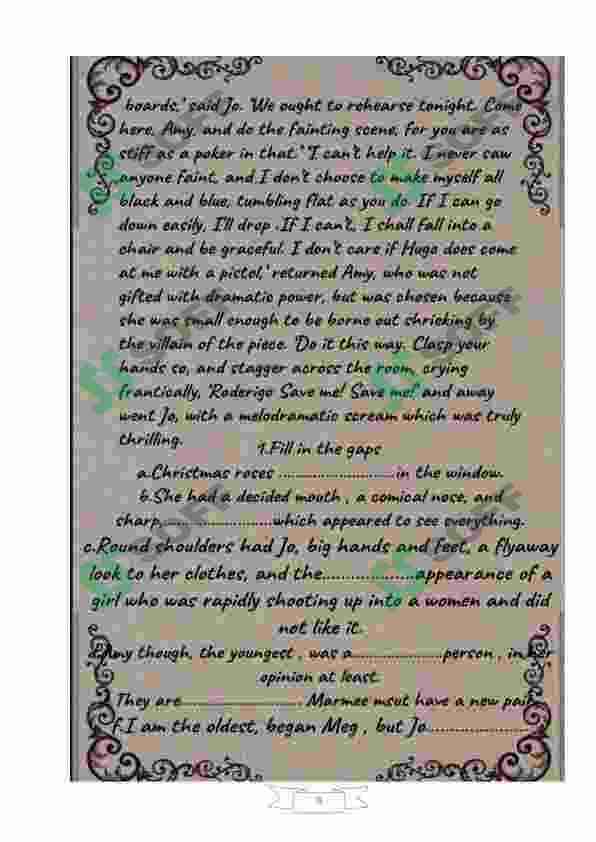 boards,' said Jo. 'We ought to rehearse tonight. Come
here, Amy, and do the fainting scene, for you are as
stiff as a poker in that.' 'I can't help it. I never saw
anyone faint, and I don't choose to make myself all
black and blue, tumbling flat as you do. If I can go
down easily, I'll drop .If I can't, I shall fall into a
chair and be graceful. I don't care if Hugo does come
at me with a pistol,' returned Amy, who was not
gifted with dramatic power, but was chosen because
she was small enough to be borne out shrieking by
the villain of the piece. 'Do it this way. Clasp your
hands so, and stagger across the room, crying
frantically, 'Roderigo Save me! Save me!' and away
went Jo, with a melodramatic scream which was truly
thrilling.
1.Fill in the gaps
a.Christmas roses ...........................in the window.
b.She had a decided mouth , a comical nose, and
sharp,.........................which appeared to see everything.
c.Round shoulders had Jo, big hands and feet, a flyaway
look to her clothes, and the...................appearance of a
girl who was rapidly shooting up into a women and did
not like it.
Amy though, the youngest , was a.....................person , in her
opinion at least.
They are............................ Marmee msut have a new pair
f.I am the oldest, began Meg , but Jo.....................
SUFF
SUFF
SUFF
SUFF
SUFF
SUFF